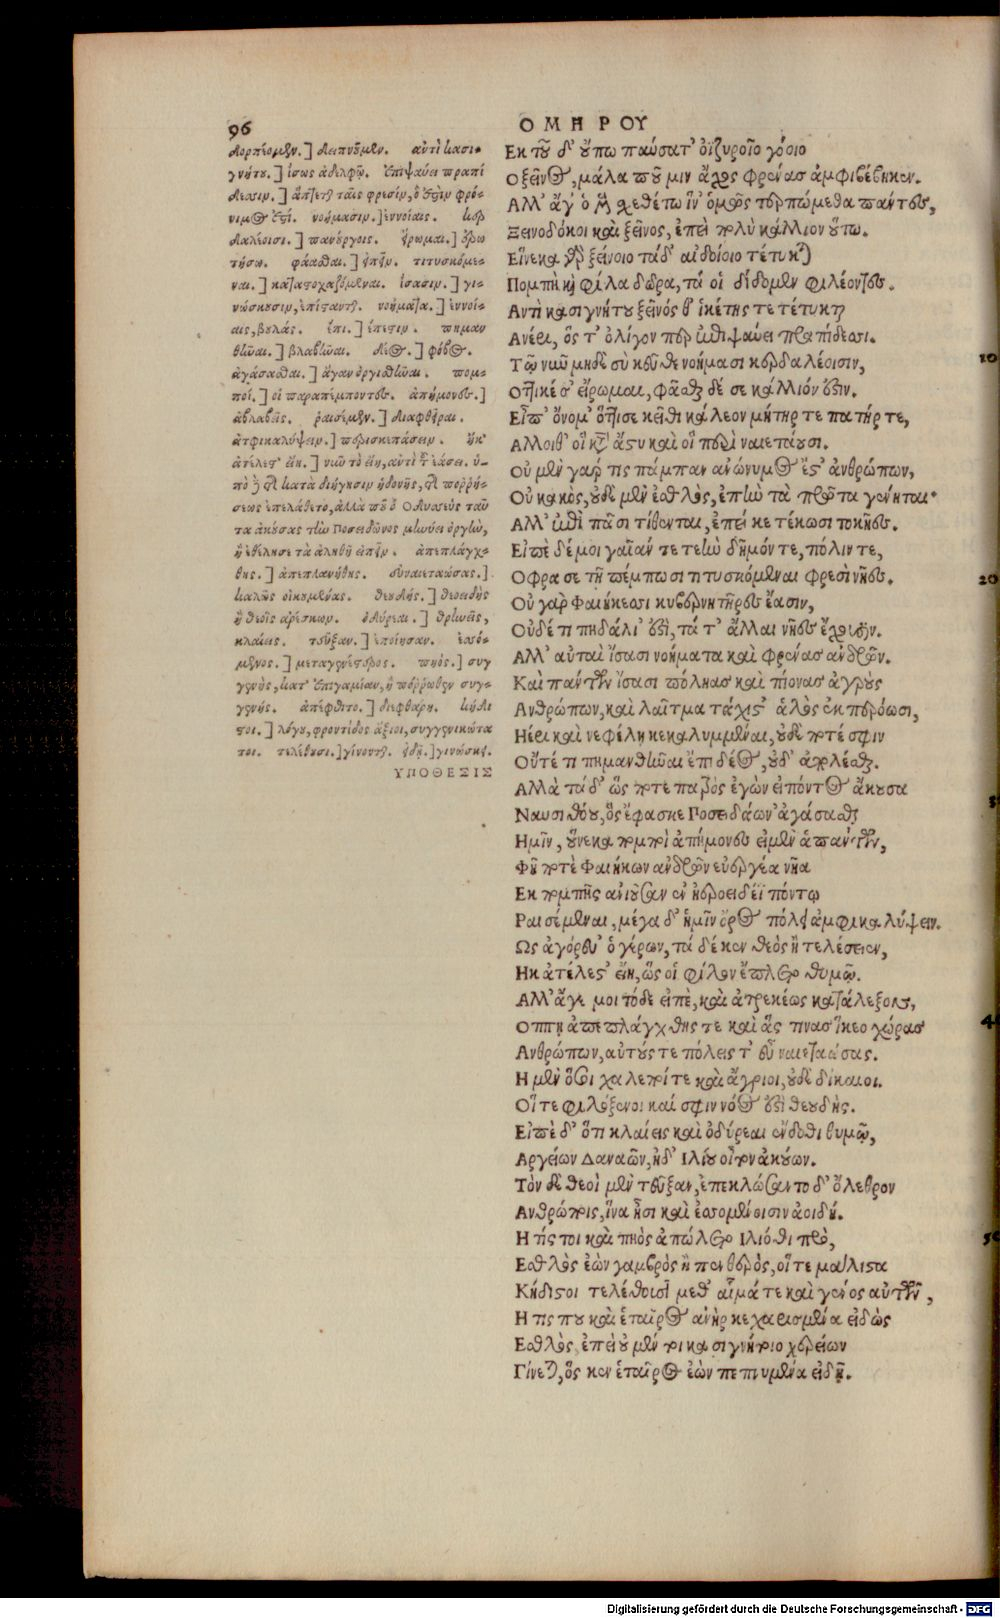 96
ΟΜΗΡΟΥ
δορπέομεν.] δειπνοῦμεν. ἀντὶ κασι-
γνήτου.] ἴσως ἀδελφῷ. ἐπιψαύει πραπί
δεσσιν.] ἅπτεται ταῖς φρεσίν, ὅ ἐστιν φρό-
νιμος ἐστί. νοήμασιν.] ἐννοίαις. κερ
δαλέοισι.] πανούργοις. ἔρωμαι.] ἐρω
τήσω. φάασθαι.] εἰπεῖν. τιτυσκόμε-
ναι.] καταστοχαζόμεναι. ἴσασιν.] γι-
νώσκουσιν, ἐπίστανται. νοήματα.] ἐννοί-
ας, βουλάς. ἔπι.] ἔπεστιν. πημαν
θῆναι.] βλαβῆναι. δέος.] φόβος.
ἀγάσασθαι.] ἄγαν ὀργισθῆναι. πομ-
ποί.] οἱ παραπέμποντες. ἀπήμονες.]
ἀβλαβεῖς. ῥαισέμεν.] διαφθεῖραι.
ἀμφικαλύψειν.] περισκεπάσειν. ἤκ'
ἀτέλεστ' εἴη.]
πὸ κατὰ διήγησιν ἡδονῆς,
σεως ἐπελάθετο, ἀλλὰ ποῦ ὁ Ὀδυσεὺς ταῦ
τα ἀκούσας τὴν Ποσειδῶνος μηνύει ὀργὴν,
ἢ ἠθέλησε τὰ ἀληθῆ εἰπεῖν. ἀπεπλάγχ-
θης.] ἀπεπλανήθης. συναιεταώσας.]
καλῶς οἰκουμένας. θεουδής.] θεοειδὴς
ἢ θεοῖς ἀρέσκων. ὀδύρεαι.] θρηνεῖς,
κλαίεις. τεῦξαν.] ἐποίησαν. ἐσσό-
μενος.] μεταγενέστερος. πηός.] συγ
γενὴς, κατ' ἐπιγαμίαν, ἢ πόρρωθεν συγ-
γενής. ἀπέφθιτο.] διεφθάρη. κήδι
στοι.] λόγου, φροντίδος ἄξιοι, συγγενικώτα
τοι. τελέθουσι.] γίνονται. εἰδῇ.] γινώσκῃ.
ΥΠΟΘΕΣΙΣ
Εκ τοῦ δ' οὔπω παύσατ' ὀϊζυροῖο γόοιο
Ο ξεῖνος, μάλα ποῦ μιν ἄχος φρένας ἀμφιβέβηκεν.
Αλλ' ἄγ' ὁ μὲν σχεθέτω ἵν' ὁμῶς τερπώμεθα πάντες,
Ξεινοδόκοι καὶ ξεῖνος, ἐπεὶ πολὺ κάλλιον οὕτω.
Εἵνεκα γὰρ ξείνοιο τάδ' αἰδοίοιο τέτυκται
Πομπὴ καὶ φίλα δῶρα, τά οἱ δίδομεν φιλέοντες.
Αντὶ κασιγνήτου ξεῖνός θ' ἱκέτης τε τέτυκται
Ανέρι, ὅς τ' ὀλίγον περ ἐπιψαύει πραπίδεσσι.
Τῷ νῦν μηδὲ σὺ κεῦθε νοήμασι κερδαλέοισιν,
Οττικέ σ' εἴρωμαι, φᾶσθαι δέ σε κάλλιόν ἐστιν.
Εἴπ' ὄνομ' ὅττισε κεῖθι κάλεον μήτηρ τε πατήρ τε,
Αλλοιθ' οἳ κατ' ἄστυ καὶ οἳ περὶ ναιετάουσι.
Οὐ μὲν γάρ τις πάμπαν ἀνώνυμος ἔστ' ἀνθρώπων,
Οὐ κακὸς, οὐδὲ μὲν ἐσθλὸς, ἐπὴν τὰ πρῶτα γένηται.
Αλλ' ἐπὶ πᾶσι τίθενται, ἐπεί κε τέκωσι τοκῆες.
Εἰπὲ δέ μοι γαῖάν τε τεὴν δῆμόν τε, πόλιν τε,
Οφρα σε τῇ πέμπωσι τιτυσκόμεναι φρεσὶ νῆες.
Οὐ γὰρ Φαιήκεσσι κυβερνητῆρες ἔασιν,
Οὐδέ τι πηδάλι' ἐστὶ, τά τ' ἄλλαι νῆες ἔχουσιν.
Αλλ' αὐταὶ ἴσασι νοήματα καὶ φρένας ἀνδρῶν.
Καὶ πάντων ἴσασι πόλιας καὶ πίονας ἀγροὺς
Ανθρώπων, καὶ λαῖτμα τάχισθ' ἁλὸς ἐκπερόωσι,
Ηέρι καὶ νεφέλῃ κεκαλυμμέναι, οὐδέ ποτέ σφιν
Οὔτέ τι πημανθῆναι ἔπι δέος, οὐδ' ἀπολέσθαι.
Αλλὰ τάδ' ὥς ποτε πατρὸς ἐγὼν εἰπόντος ἄκουσα
Ναυσιθόου, ὃς ἔφασκε Ποσειδάων' ἀγάσασθαι
Ημῖν, οὕνεκα πομποὶ ἀπήμονες εἰμὲν ἁπάντων,
Φῆ ποτὲ Φαιήκων ἀνδρῶν εὐεργέα νῆα
Εκ πομπῆς ἀνιοῦσαν ἐν ἠεροειδέϊ πόντῳ
Ραισέμεναι, μέγα δ' ἡμῖν ὄρος πόλει ἀμφικαλύψειν.
Ως ἀγόρευ' ὁ γέρων, τὰ δέ κεν θεὸς ἢ τελέσειεν,
Ηκ ἀτέλεστ' εἴη, ὥς οἱ φίλον ἔπλετο θυμῷ.
Αλλ' ἄγε μοι τόδε εἰπὲ, καὶ ἀτρεκέως κατάλεξον,
Οππη ἀπεπλάγχθης τε καὶ ἅς τινας ἵκεο χώρας
Ανθρώπων, αὐτούς τε πόλεις τ' εὖ ναιεταώσας.
Η μὲν ὅσοι χαλεποί τε καὶ ἄγριοι, οὐδὲ δίκαιοι.
Οἵ τε φιλόξενοι καί σφιν νόος ἐστὶ θεουδής.
Εἰπὲ δ' ὅτι κλαίεις καὶ ὀδύρεαι ἔνδοθι θυμῷ,
Αργείων Δαναῶν, ἠδ' Ιλίου οἶτον ἀκούων.
Τὸν δὲ θεοὶ μὲν τεῦξαν, ἐπεκλώσαντο δ' ὄλεθρον
Ανθρώποις, ἵνα ᾖσι καὶ ἐσσομένοισιν ἀοιδή.
Η τίς τοι καὶ πηὸς ἀπώλετο Ιλιόθι πρὸ,
Εσθλὸς ἐὼν γαμβρὸς ἢ πενθερὸς, οἵτε μάλιστα
Κήδιστοι τελέθουσι μεθ' αἷμά τε καὶ γένος αὐτῶν,
Η τις που καὶ ἑταῖρος ἀνὴρ κεχαρισμένα εἰδὼς
Εσθλὸς, ἐπεὶ οὐ μέν τι κασιγνήτοιο χερείων
Γίνεται, ὅς κεν ἑταῖρος ἐὼν πεπνυμένα εἰδῇ.
10
20
40
Digitalisierung gefördert durch die Deutsche Forschungsgemeinschaft - DFG